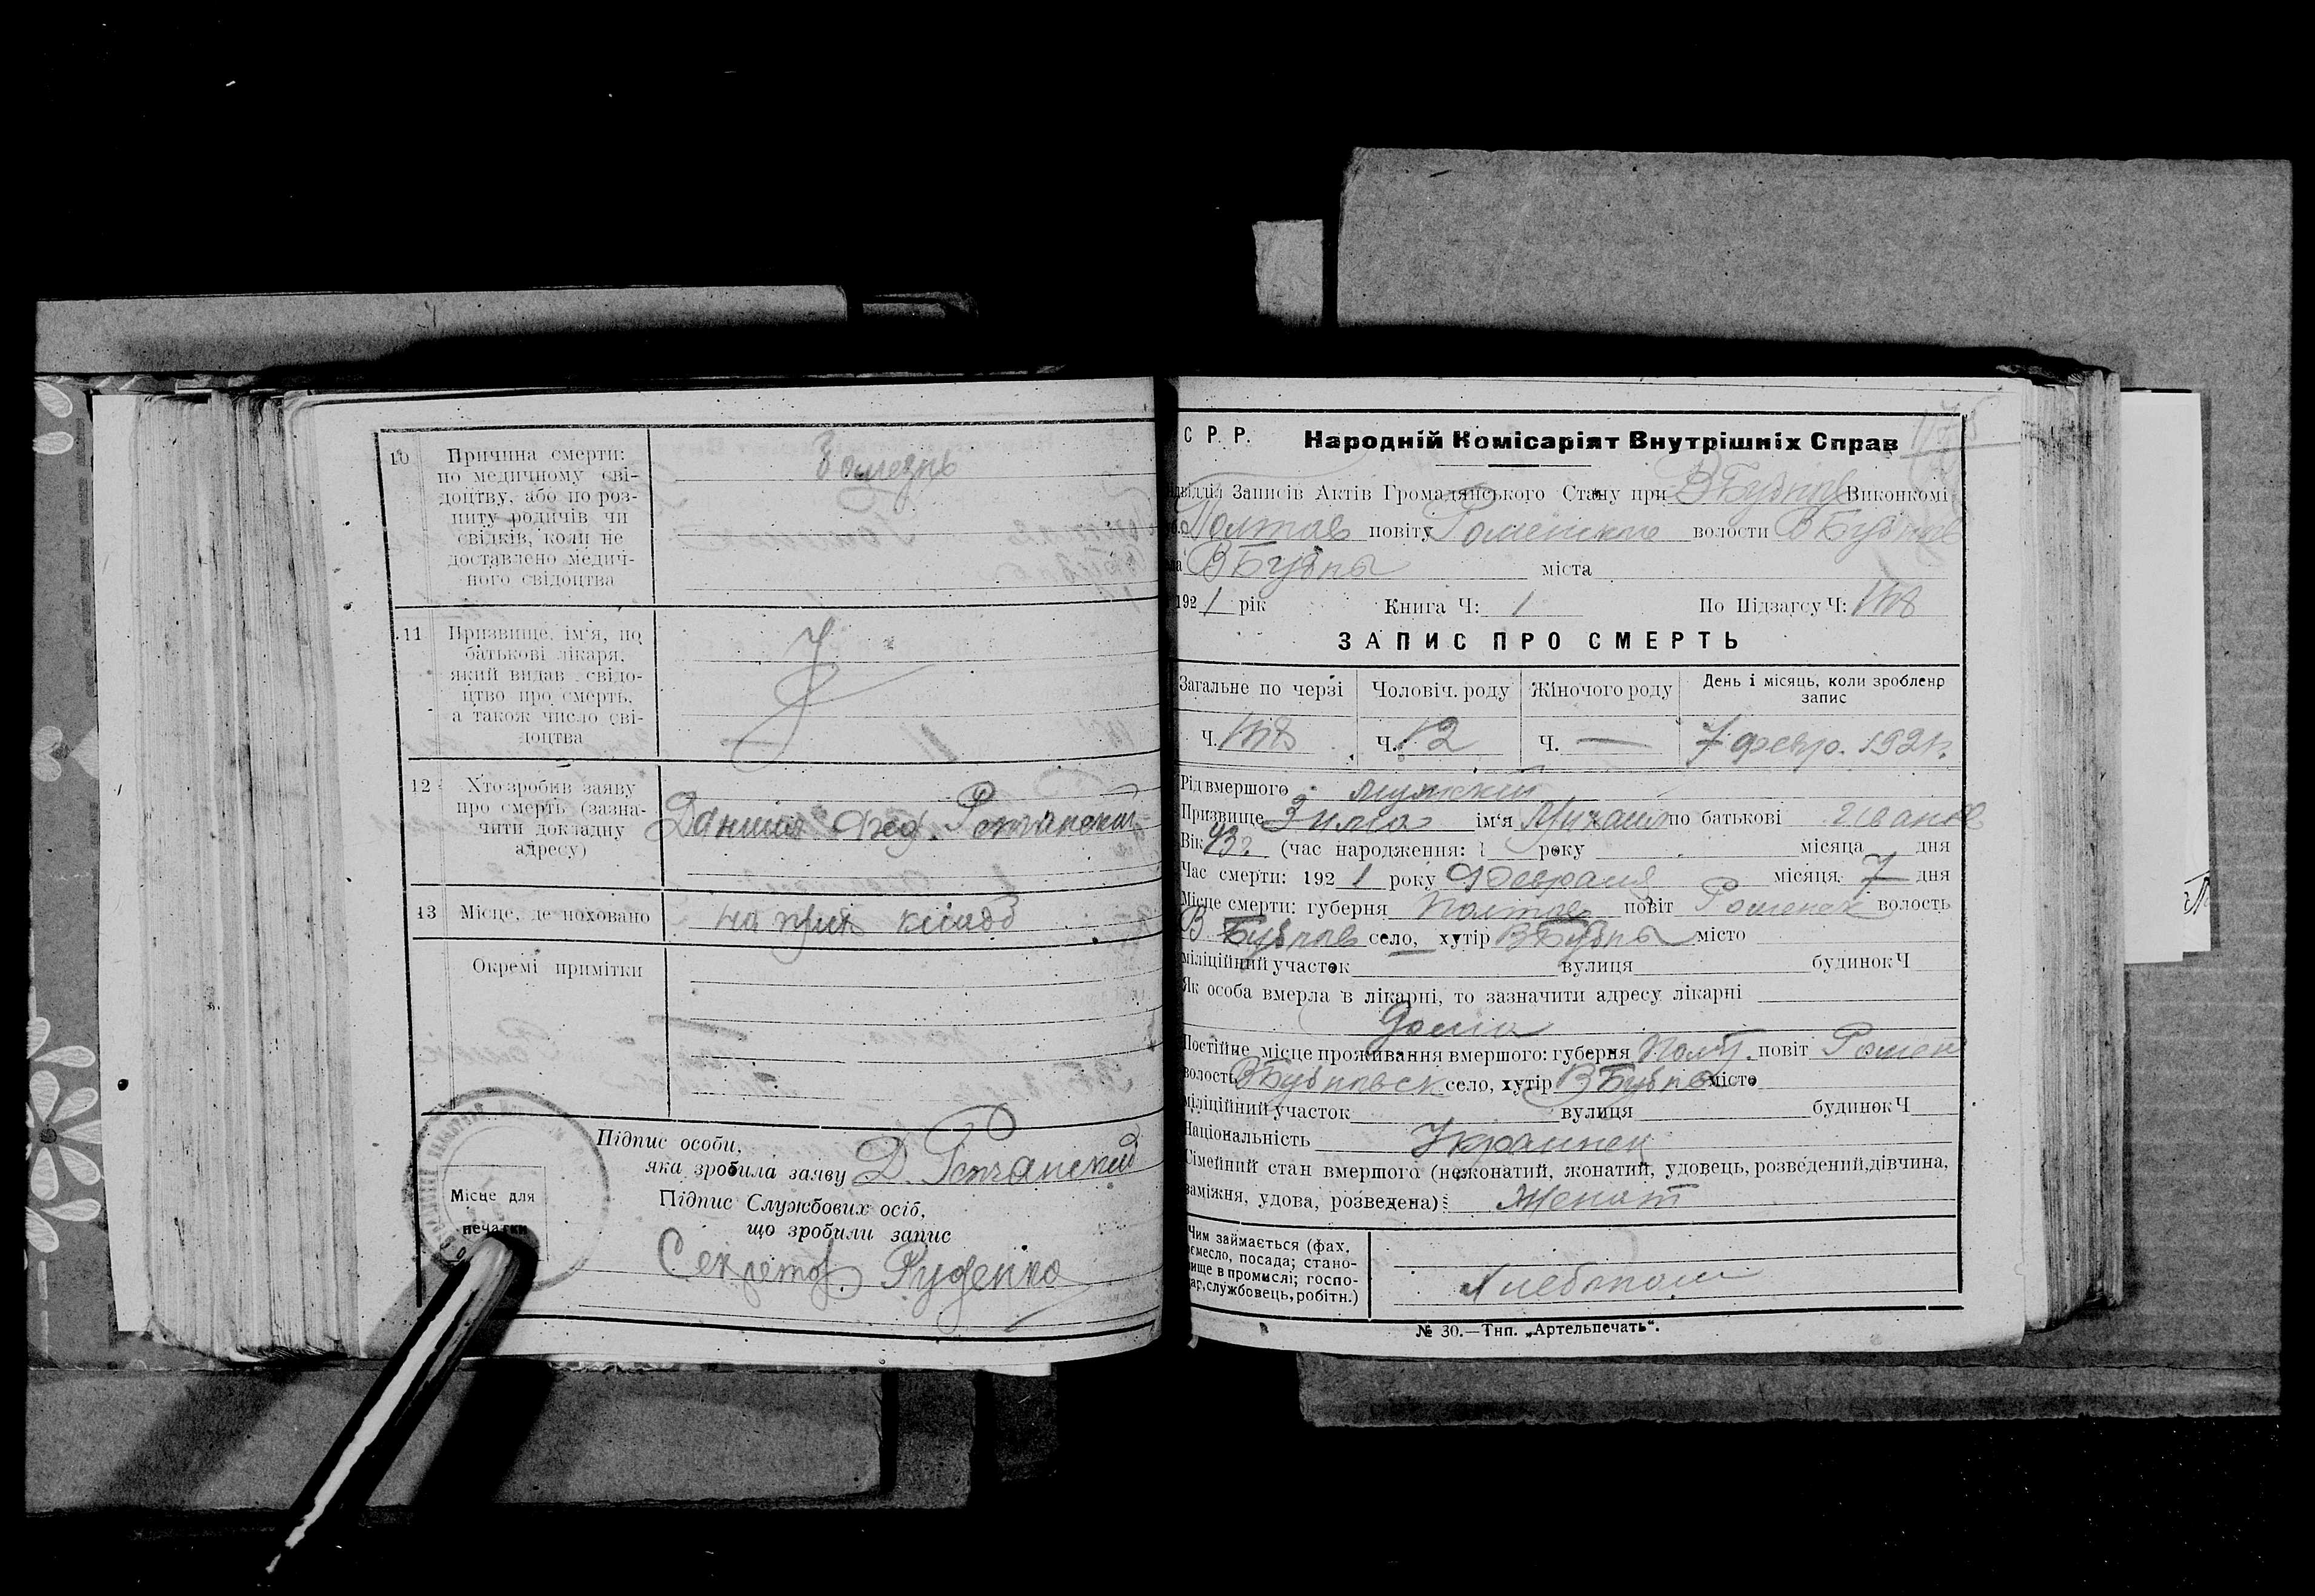 10 Причина смерти:
по медичному сві-
доцтву, або по роз-
питу родичів чи
свідків, коли не
доставлено медич-
ного свідоцтва
болезнь
11 Призвище, ім'я, по
батькові лікаря,
який видав свідо-
цтво про смерть,
а також число сві-
доцтва
12 Хто зробив заяву
про смерть (зазна-
чити докладну
адресу)
Даниил Фед.
13 Місце, де поховано
на прих кладб
Окремі примітки
Місце для
печатки
Підпис особи,
яка зробила заяву Д.
Підпис Службових осіб,
що зробили запис
Секретар Руденко
С Р. Р. Народній Комісаріят Внутрішніх Справ
ідвідділ Записів Актів Громадянського Стану при В Бубнов Виконкомі
Полтав повіту Роменского волости В Бубнов
В Бубны міста
1921 рік Книга Ч: 1 По Підзагсу Ч:
ЗАПИС ПРО СМЕРТЬ
Загальне по черзі Чоловіч. роду Жіночого роду День і місяць, коли зроблено
запис
Ч. Ч. 12 Ч. — 7 февр. 1921 г.
Рід вмершого мужский
Призвище Зима ім'я Михаил по батькові Иванов
Вік 43 г. (час народження: 1 року місяца дня
Час смерти: 1921 року Февраля місяця 7 дня
Місце смерти: губерня Полтав повіт Роменск волость
В. Бубнов село, хутір В Бубны місто
міліційний участок вулиця будинок Ч
Як особа вмерла в лікарні, то зазначити адресу лікарні
Дома
Постійне місце проживання вмершого: губерня Полт. повіт Ромен
волость В Бубновск село, хутір В Бубны місто
міліційний участок вулиця будинок Ч
Національність Украинец
Сімейний стан вмершого (нежонатий, жонатий, удовець, розведений, дівчина,
заміжня, удова, розведена): Женат
Чим займається (фах.
ремесло, посада; стано-
вище в промислі; госпо-
дар, службовець, робітн.)
Хлебопаш
№ 30.—Тип. „Артельпечать“.